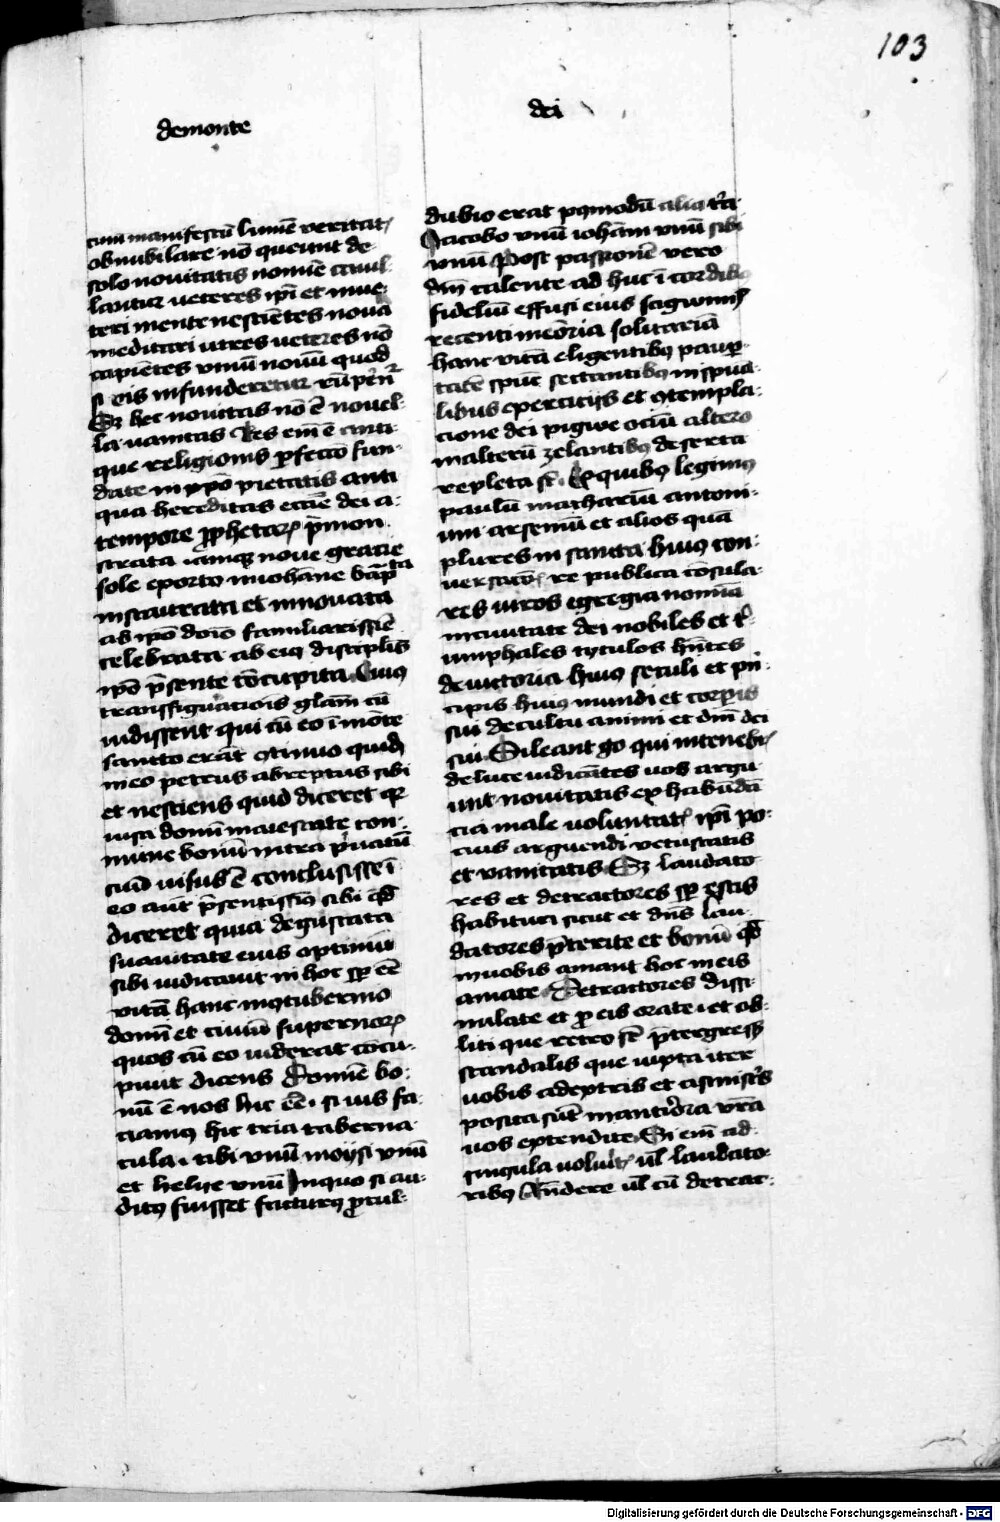 103
demonte
dei
cum manifestū lumē veritat
obnubilare nō queunt de
solo nouitatis nomīe cauil
lantur veteres ip̄i et inue
teri mente nesciētes noua
meditari utres veteres nō
capiētes vinū nouū quod
si eis infunderetur rūper̄nt
Sz hec nouitas nō ē nouel
la vanitas Res em̄ ē anti
que religionis ꝑfectō fun
date in xp̄o pietatis anti
qua hereditas eccīe dei a
tempore ꝓphetarꝝ p̄mon
strata iamqꝫ noue gracie
sole exorto in iohāne bapt̄ta
instaurata et innouata
ab ip̄o dōio familiarissīe
celebrata ab eiꝰ disciplis̄
ip̄o p̄sente cōcupita Cuiꝰ
transfiguratiōis glām cū
vidissent qui cū eo ī mōte
sancto erāt ꝯtinuo quidē
in eo petrus abreptus sibi
et nesciens quid diceret qꝛ
visa domī maiestate con
mune bonū intra p̄uatū
suū visus ē conclusisse ī
eo aūt p̄sentissimꝰ sibi qd̄
diceret quia degustata
suauitate eius optimū
sibi iudicauit in hoc sꝑ eē
vitā hanc in ꝯtubernio
domī et ciuiū supernorꝝ
quos cū eo viderat cōcu
piuit dicens Domīe bo
nū ē nos hic eē si vis fa
ciamꝰ hic tria taberna
cula tibi vnū moysi vnū
et helie vnū In quo si au
ditꝰ fuisset facturꝰ ꝓcul
dubio erat pꝰmodū alia t̄ia
Iacobo vnū iohāni vnū sibi
vnū Post passionē vero
dn̄i calente ad huc ī cordibꝰ
fidelium effusi eius sāguinis
recenti meōria solitariā
hanc vitā eligentibꝰ pauꝑ
tatē spūs sectantibꝰ in spūa
libus exerciciis et ꝯtempla
cione dei pigwe ociū altero
in alterū zelantibꝰ deserta
repleta st̄ Ex quibꝰ legimꝰ
paulū macharium antoni
um arseniū et alios quā
plures in sancta huiꝰ con
uersatōe re publica cōsula
res viros egregia nomīa
in ciuitate dei nobiles et tⁱ
umphales tytulos hn̄tes
de victoria huiꝰ seculi et pn̄
cipis huiꝰ mundi et corporis
sui de cultu animi et dn̄i dei
sui Sileant go qui in tenebrꝭ
de luce iudicātes uos argu
unt nouitatis ex habūdā
cia male voluntatꝭ ip̄i po
cius arguendi vetustatis
et vanitatis Sz laudato
res et detractores sꝑ estis
habituri sicut et dn̄s Lau
datores p̄terite et bonū qd̄
in vobis amant hoc in eis
amate Detractores dissi
mulate et ꝓ eis orate et ob
liti que retro st̄ p̄tergressꝭ
scandalis que iuxta iter
vobis a dextris et a sinistr̄s
posita sūt in anteriora vr̄a
vos extendite Si em̄ ad
singula voluitꝭ ul̄ laudato
ribꝰ Rn̄dere ul̄ cū detrac
Digitalisierung gefördert durch die Deutsche Forschungsgemeinschaft - DFG